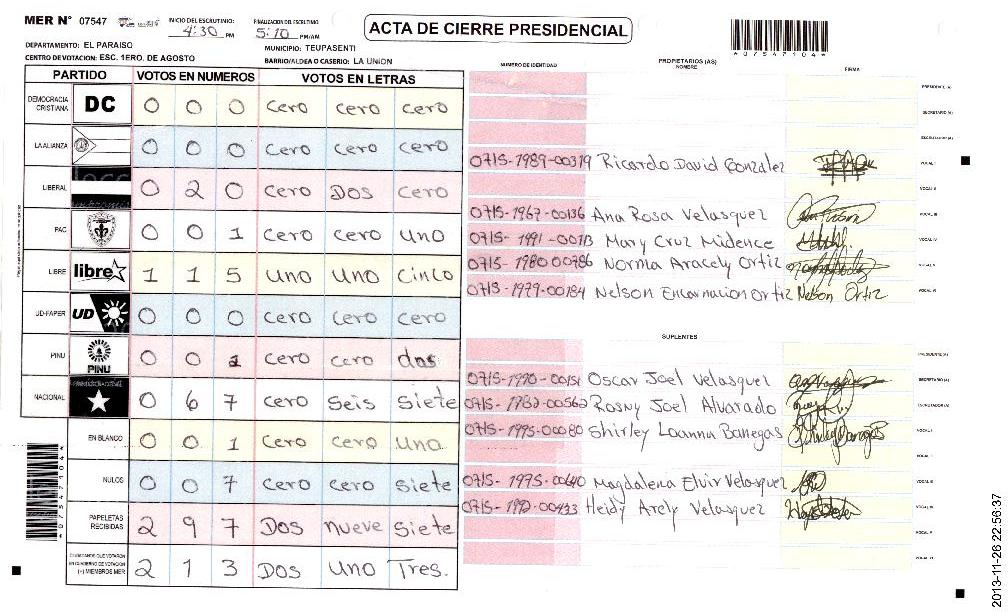 MER N° 07547
INICIO DEL ESCRUTINIO: 4:30 PM
FINALIZACION DEL ESCRUTINIO 5:10 PM/AM
ACTA DE CIERRE PRESIDENCIAL
*07547104*
DEPARTAMENTO: EL PARAISO
MUNICIPIO: TEUPASENTI
CENTRO DE VOTACION: ESC. 1ERO. DE AGOSTO
BARRIO/ALDEA O CASERIO: LA UNION
PARTIDO VOTOS EN NUMEROS VOTOS EN LETRAS
DEMOCRACIA CRISTIANA DC 0 0 0 cero cero cero
LA ALIANZA 0 0 0 cero cero cero
LIBERAL 0 2 0 cero DOS cero
PAC 0 0 1 cero cero uno
LIBRE libre 1 1 5 uno uno cinco
UD-FAPER UD 0 0 0 cero cero cero
PINU PINU 0 0 cero cero dos
NACIONAL 0 6 7 cero seis siete
EN BLANCO 0 0 1 cero cero uno
NULOS 0 0 7 cero cero siete
PAPELETAS RECIBIDAS 2 9 7 DOS nueve siete
CIUDADANOS QUE VOTARON EN CUADERNO DE VOTACION (+) MIEMBROS MER 2 1 3 DOS uno Tres.
*07547104*
NUMERO DE IDENTIDAD
PROPIETARIOS (AS)
NOMBRE
FIRMA
PRESIDENTE (A)
SECRETARIO (A)
ESCRUTADOR (A)
0715-1989-00319 Ricardo David Gonzalez VOCAL I
VOCAL II
0715-1967-00136 Ana Rosa Velasquez VOCAL III
0715-1991-00113 Mary Cruz Midence VOCAL IV
0715-1980 00786 Norma Aracely Ortiz VOCAL V
0715-1979-00184 Nelson Encarnacion Ortiz Nelson Ortiz VOCAL VI
SUPLENTES
PRESIDENTE (A)
0715-1990-00151 Oscar Joel Velasquez SECRETARIO (A)
0715-1982-00562 Rosny Joel Alvarado ESCRUTADOR (A)
0715-1995-00080 Shirley Loanna Banegas VOCAL I
0715-1975-00640 Magdalena Elvir Velasquez VOCAL III
0715-1992-00433 Heidy Arely Velasquez
VOCAL V
VOCAL VI
2013-11-26 22:56:37